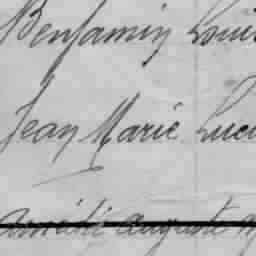 Benjamin Loui
Jean Marie Luci
Auguste